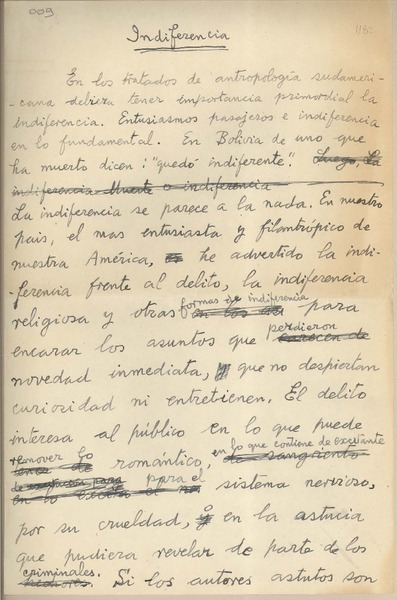 009
118
Indiferencia
En los tratados de antropología sudameri-
-cana debiera tener importancia primordial la
indiferencia. Entusiasmos pasajeros e indiferencia
en lo fundamental. En Bolivia de uno que
ha muerto dicen: "quedó indiferente". Luego, La
indiferencia Muerte o indiferencia
La indiferencia se parece a la nada. En nuestro
pais, el mas entusiasta y filantrópico de
nuestra América, he advertido la indi-
-ferencia frente al delito, la indiferencia
religiosa y otras formas de indiferencia para
encarar los asuntos que perdieron carecen de
novedad inmediata, que no despiertan
curiosidad ni entretienen. El delito
interesa al público en lo que puede
remover lo romántico, en lo que contiene de excitante
de sangriento
para el sistema nervioso,
por su crueldad, en la astucia
que pudiera revelar de parte de los
criminales. Si los autores astutos son